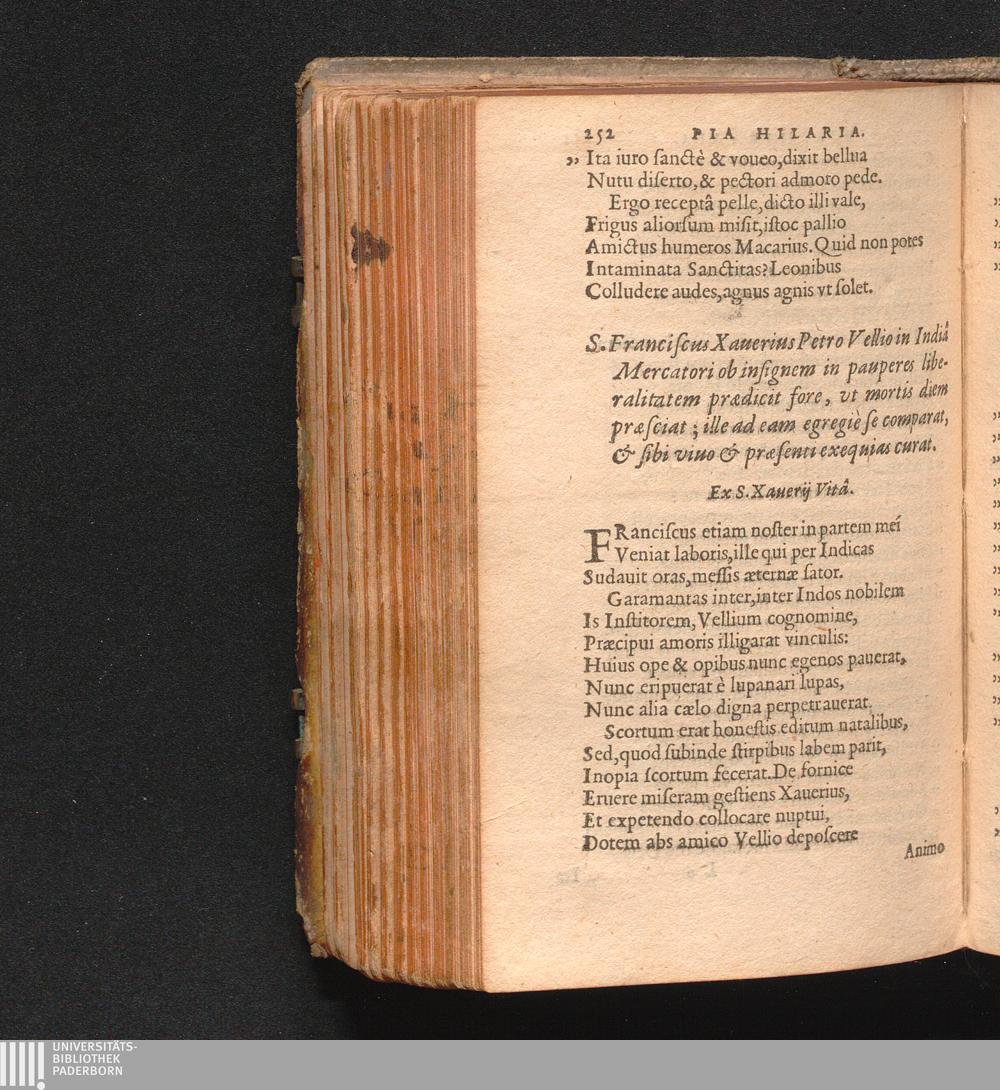 252 PIA HILARIA.
„ Ita iuro ſanctè & voueo,dixit bellua
Nutu diſerto,& pectori admoto pede.
Ergo receptâ pelle,dicto illi vale,
Frigus aliorſum miſit,iſtoc pallio
Amictus humeros Macarius.Quid non potes
Intaminata Sanctitas?Leonibus
Colludere audes,agnus agnis vt ſolet.
S. Franciſcus Xauerius Petro Vellio in Indiâ
Mercatori ob inſignem in pauperes libe-
ralitatem prædicit fore, vt mortis diem
præſciat ; ille ad eam egregiè ſe comparat,
& ſibi viuo & præſenti exequias curat.
Ex S. Xauerij Vitâ.
FRanciſcus etiam noſter in partem meí
Veniat laboris,ille qui per Indicas
Sudauit oras,meſſis æternæ ſator.
Garamantas inter,inter Indos nobilem
Is Inſtitorem,Vellium cognomine,
Præcipui amoris illigarat vinculis:
Huius ope & opibus nunc egenos pauerat,
Nunc eripuerat è lupanari lupas,
Nunc alia cælo digna perpetrauerat.
Scortum erat honeſtis editum natalibus,
Sed,quod ſubinde ſtirpibus labem parit,
Inopia ſcortum fecerat.De fornice
Eruere miſeram geſtiens Xauerius,
Et expetendo collocare nuptui,
Dotem abs amico Vellio depoſcere
Animo
UNIVERSITÄTS-
BIBLIOTHEK
PADERBORN